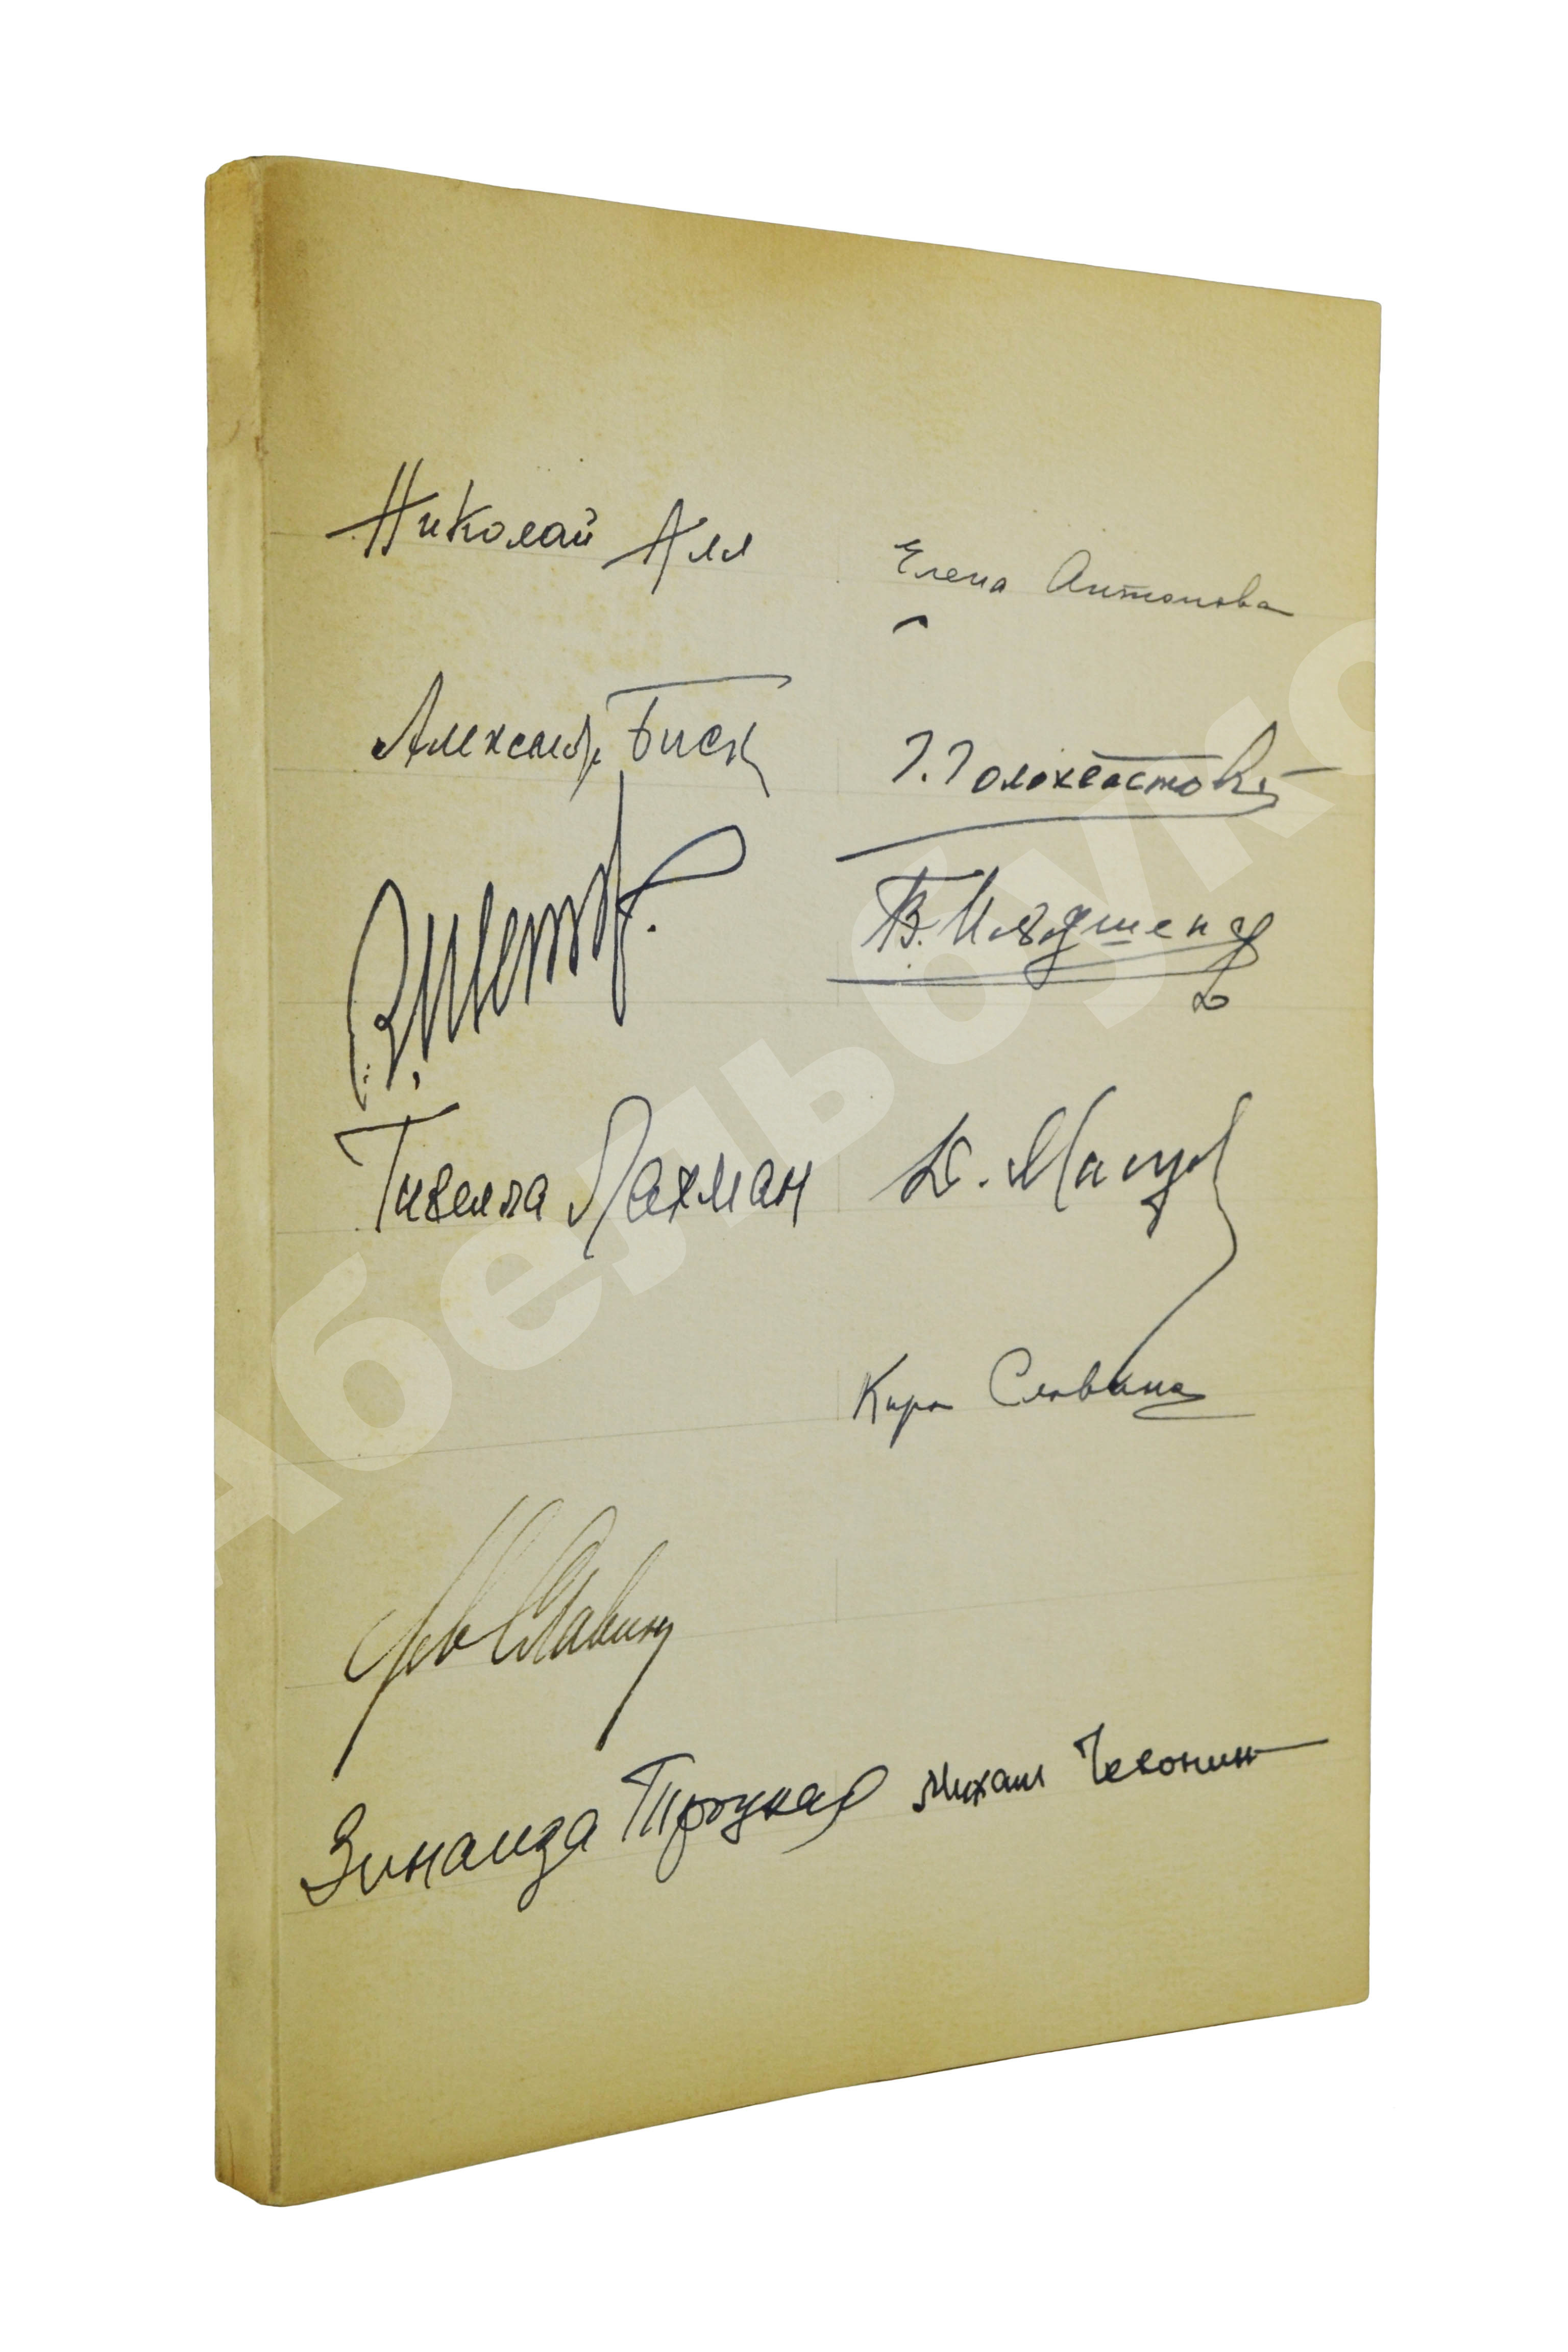 Николай Алл
Елена Антонова
Александръ Биск
Г. Голохвастовъ
В. Ильяшенко
Гизелла Лахман
Кира Славина
Лев Славин
Зинаида Троцкая
Михаил Чехонин
Абельбук